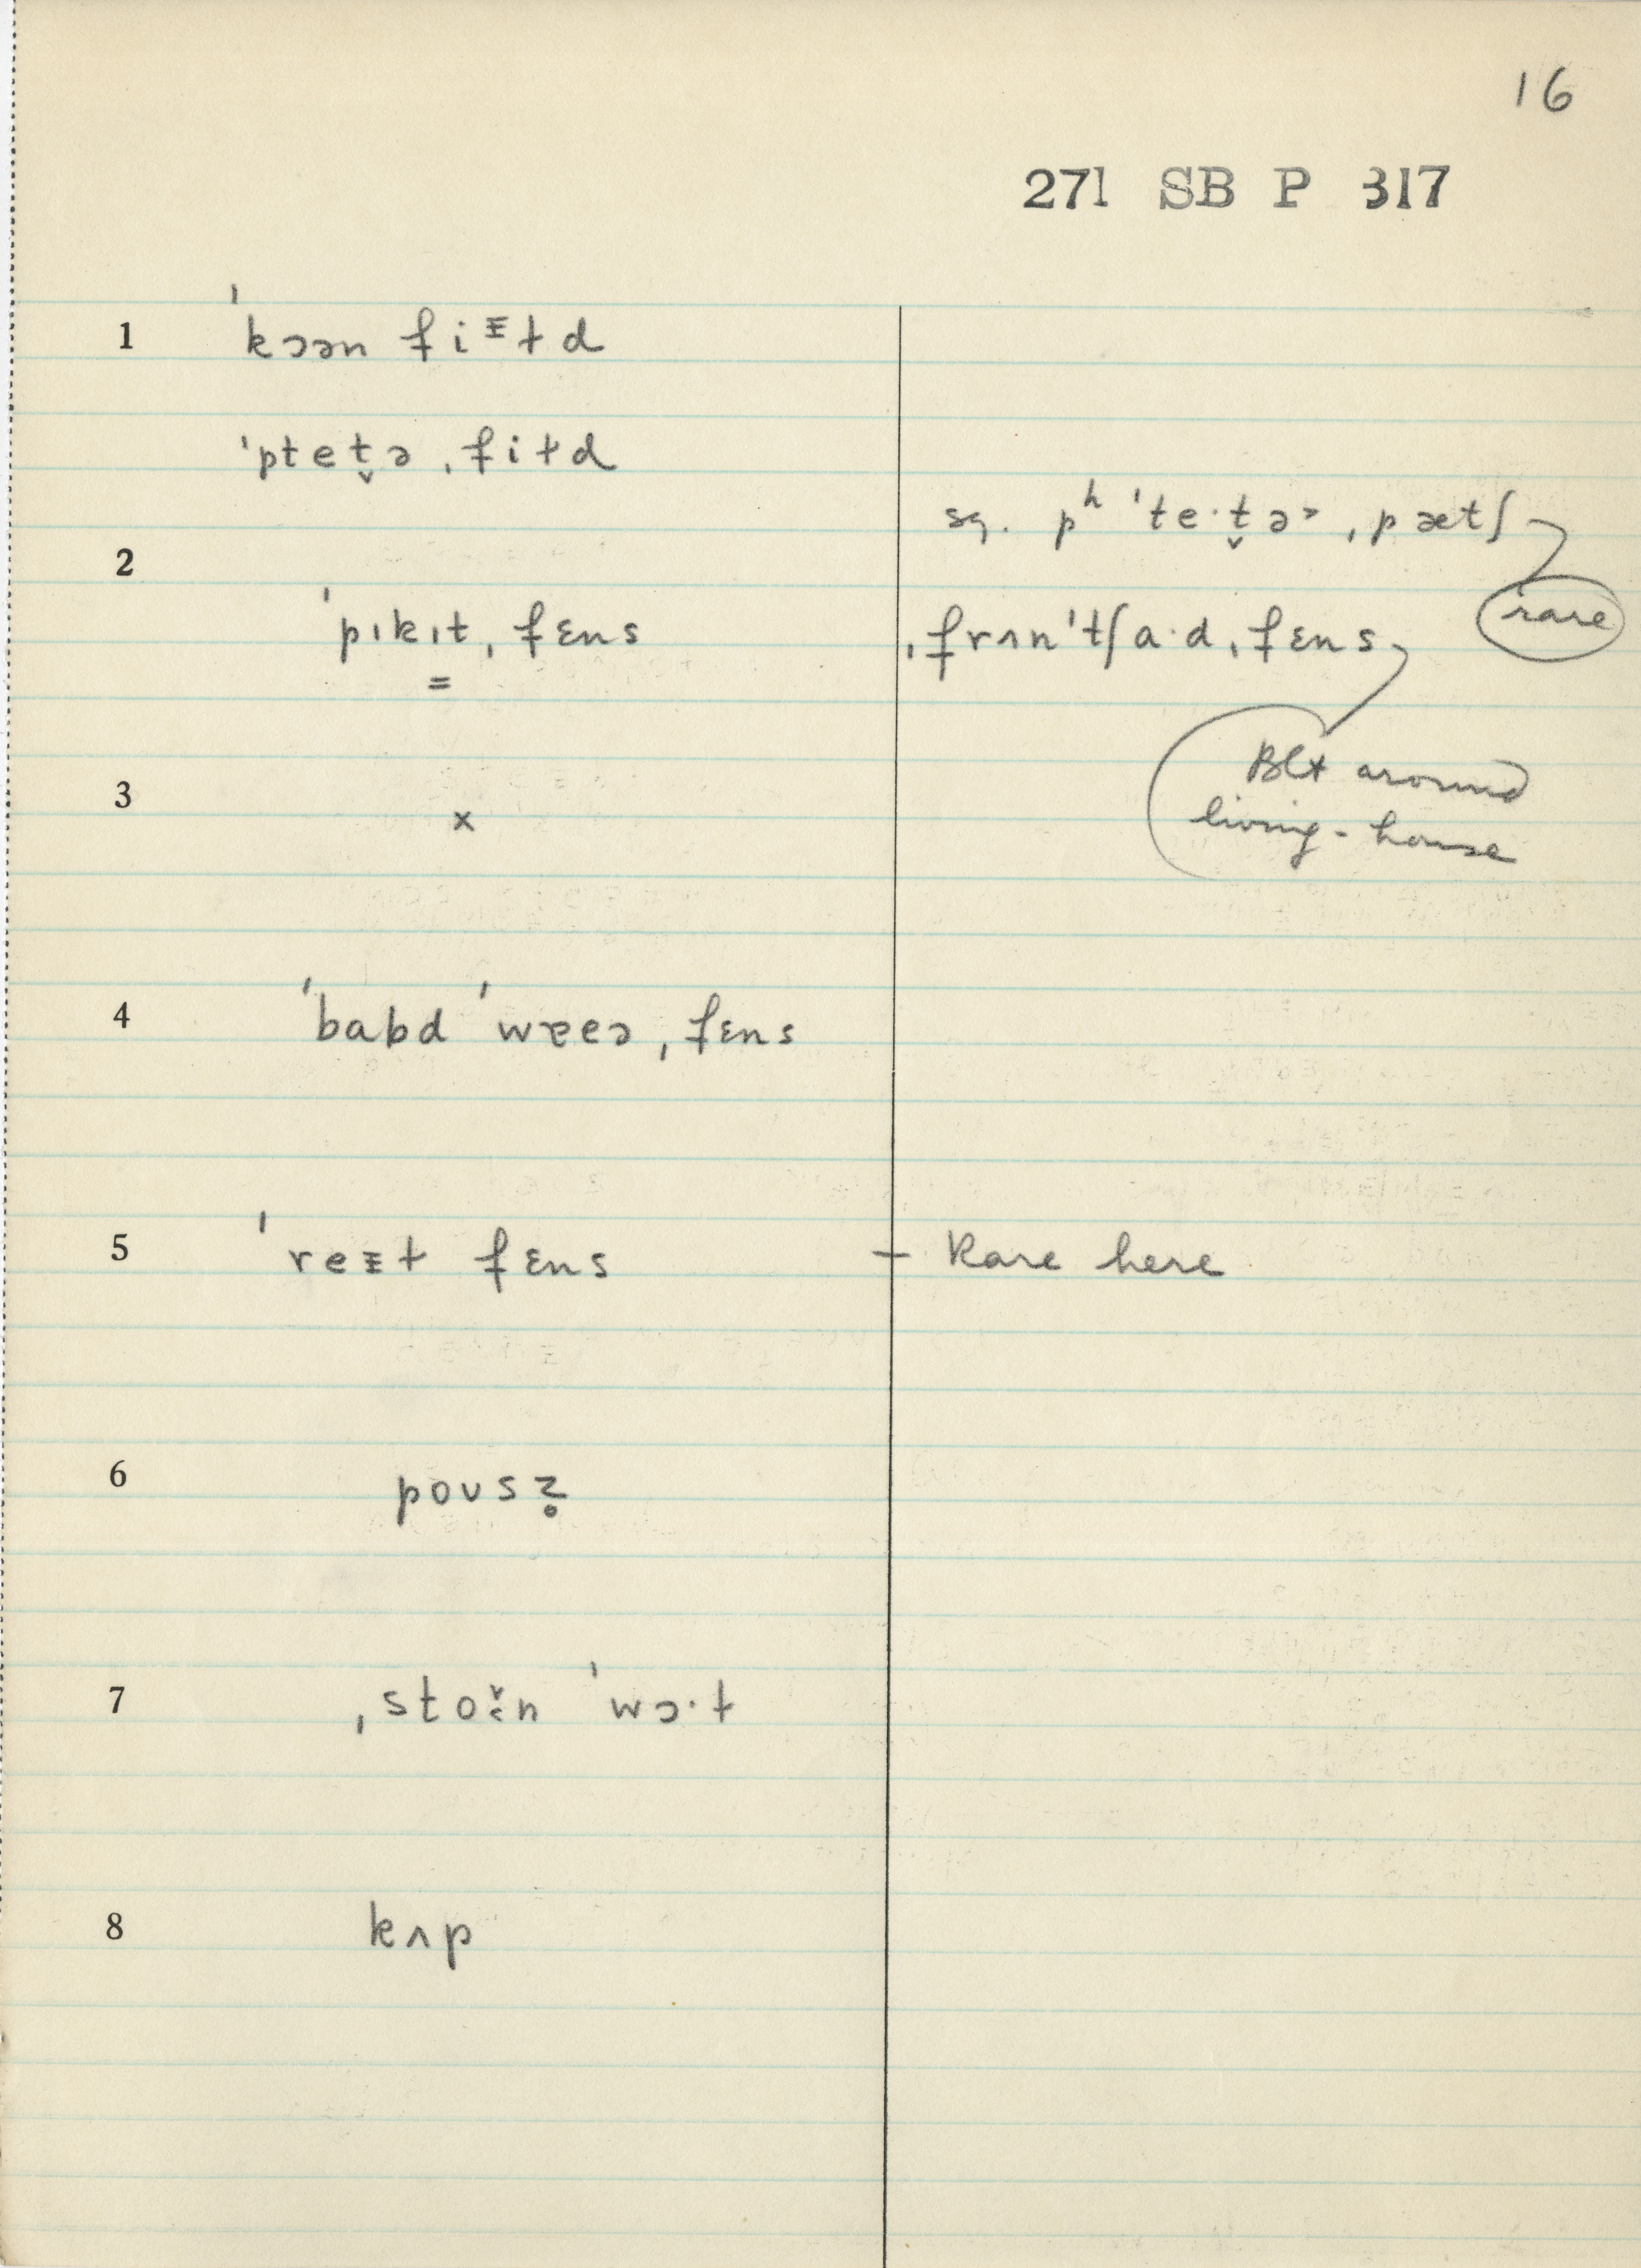 16
271 SB P 317
1 ˈkɔən fiᵻɫd
ˈptet̬ə ˌfiɫd
sg. pʰ ˈteˑt̬ə˃ ˌpætʃ
rare
2 ˈpɪkɪt ˌfɛns
ˌfrʌnˈtʃaˑd ˌfɛns
=
Blt around
living-house
3 x
4 ˈbabd ˈwɐeə ˌfɛns
5 ˈreᵻɫ fɛns – Rare here
6 poʊsz̥
7 ˌstoːn ˈwɔˑɫ
8 kʌp